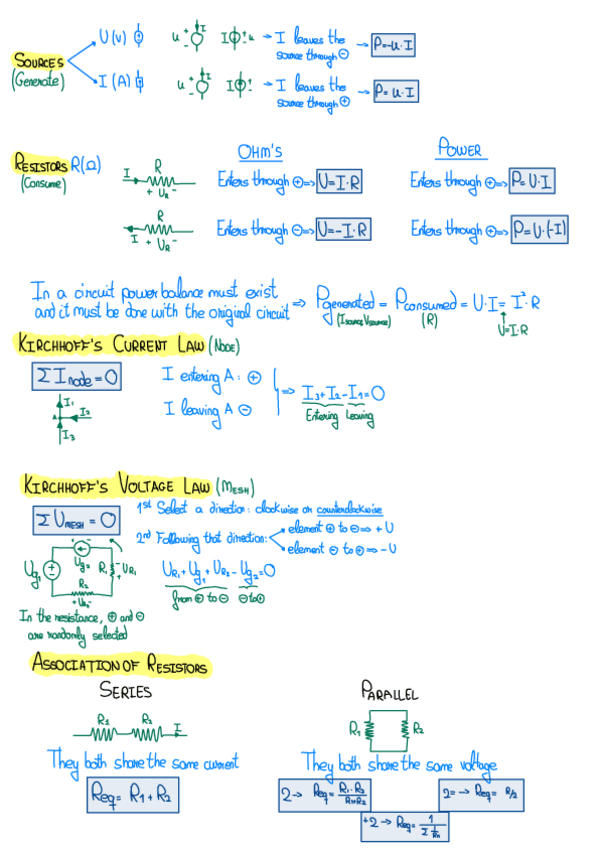 SOURCES
(Generate)
U (V)
u + - I u
→ I leaves the source through ⊖ → P=-u·I
I (A)
u + - I
→ I leaves the source through ⊕ → P= u·I
OHM'S
POWER
RESISTORS R(Ω)
(Consume)
I R + UR -
Enters through ⊕ => U=I·R
Enters through ⊕ => P= U·I
R I + UR -
Enters through ⊖ => U=-I·R
Enters through ⊖ => P= U·(-I)
In a circuit power balance must exist
and it must be done with the original circuit => Pgenerated = Pconsumed = U·I = I²·R
(Isource Vsource) (R) U=I·R
KIRCHHOFF'S CURRENT LAW (NODE)
Σ I node = 0
I entering A: ⊕
I leaving A ⊖
=> I3+I2-I1=0
Entering Leaving
I1
A I2
I3
KIRCHHOFF'S VOLTAGE LAW (MESH)
Σ U MESH = 0
1st Select a direction: clockwise or counterclockwise
2nd Following that direction:
element ⊕ to ⊖ => + U
element ⊖ to ⊕ => - U
Ug1 + - Ug2 R1 + UR1 -
R2
+ UR2 -
UR1+Ug1+UR2-Ug2=0
from ⊕ to ⊖ ⊖ to ⊕
In the resistance, ⊕ and ⊖
are randomly selected
ASSOCIATION OF RESISTORS
SERIES
PARALLEL
R1 R2 I
R1 R2
They both share the same current
They both share the same voltage
Req= R1 + R2
2 → Req = R1·R2/R1+R2
2= → Req= R/2
+2 → Req= 1/Σ 1/Rn